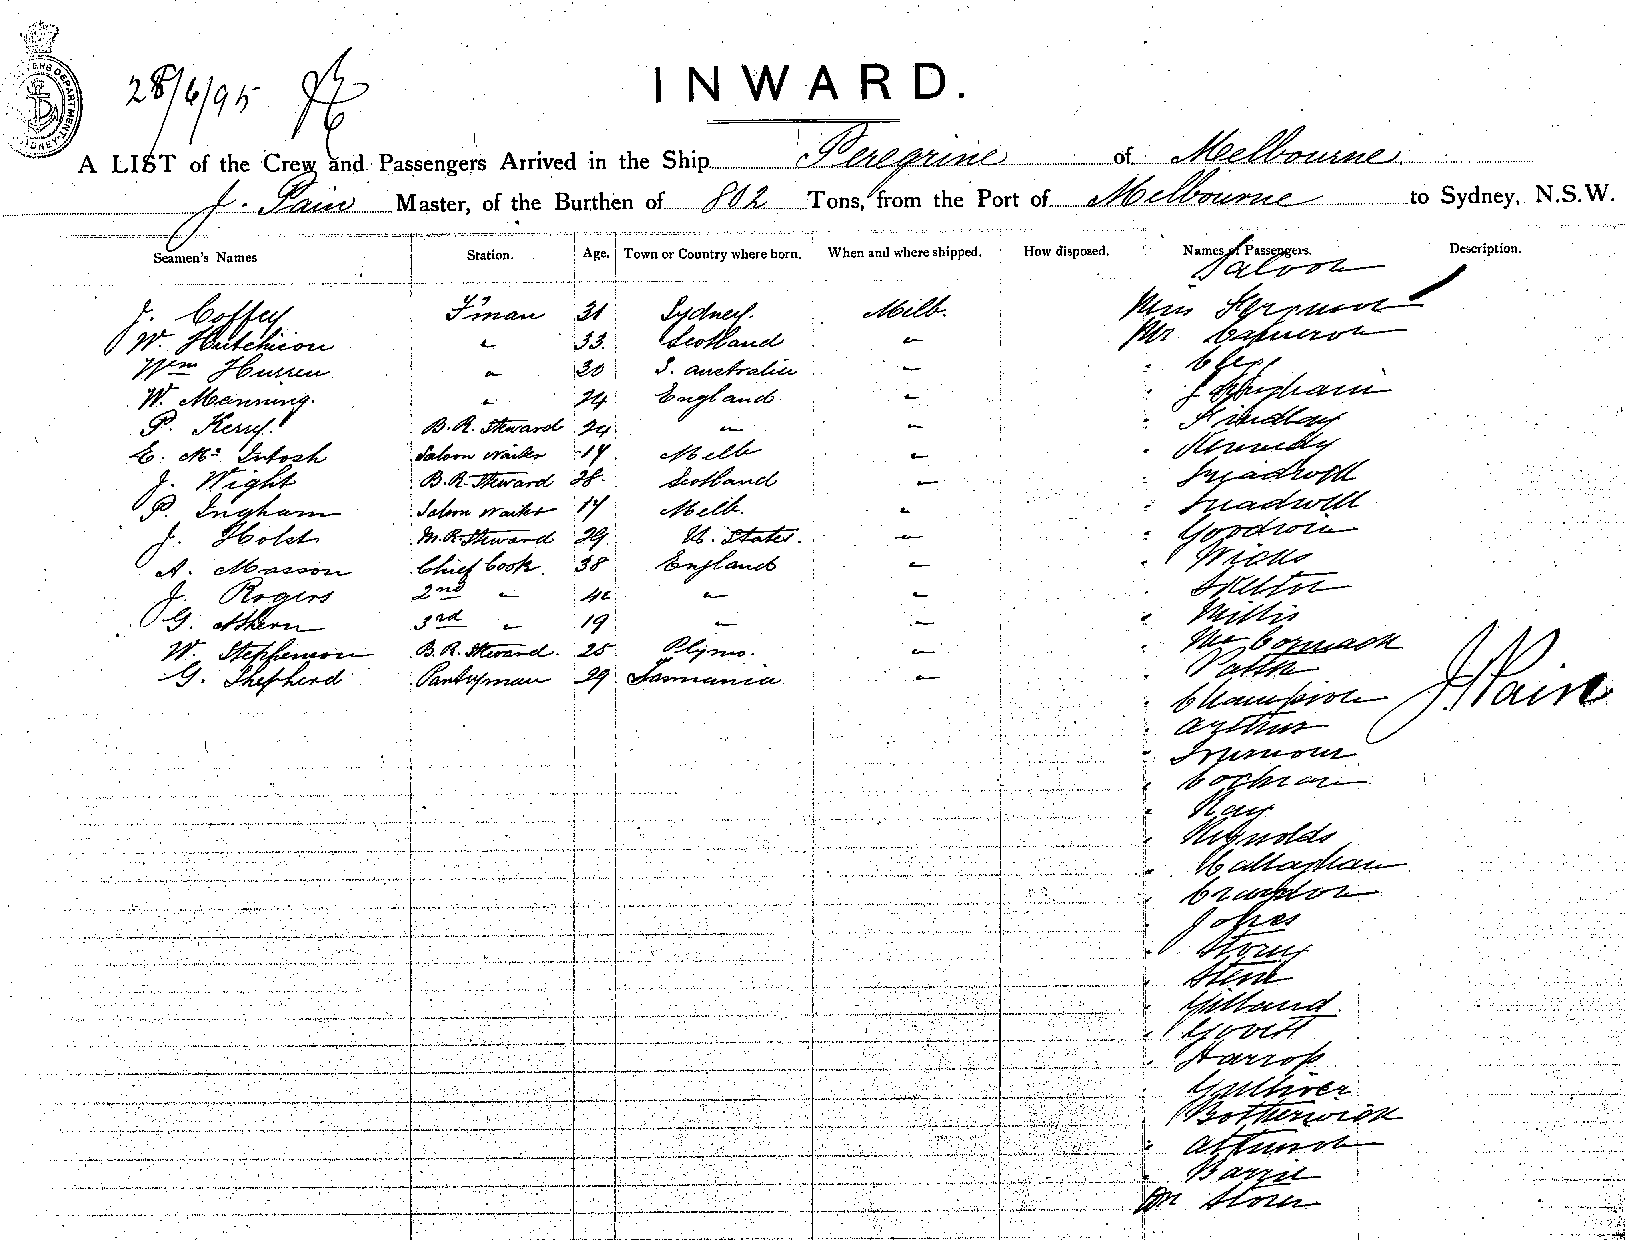 28/6/95
INWARD.
A LIST of the Crew and Passengers Arrived in the Ship Peregrine of Melbourne
J. Pain Master, of the Burthen of 802 Tons, from the Port of Melbourne to Sydney, N.S.W.
Seamen's Names Station. Age. Town or Country where born. When and where shipped. How disposed. Names of Passengers. Description.
Saloon
J. Coffey F'man 31 Sydney. Melb. Miss Ferguson
W. Hutchison " 33 Scotland " Mr Cameron
Wm Hurren " 30 S. Australia " "
W. Manning. " 24 England " " J
P. Kerry. B.R. Steward 24 " " " Findlay
E. Mc Intosh Saloon Waiter 17 Melb " " Kennedy
J. Wight B.R. Steward 38 Scotland " " Treadwell
P. Ingham Saloon Waiter 17 Melb. " " Treadwell
J. Holst M.R. Steward 29 U. States. " " Goodwin
A. Masson Chief Cook. 38 England " " Wicks
J. Rogers 2nd " 42 " " " Skelton
G. Ahern 3rd " 19 " " " Millis
W. Stephenson B.R. Steward. 25 Plymo. " " McCormack
G. Shepherd Pantryman 29 Tasmania " "
J Pain
" Champion
" Arthur
" Seymour
" Cochran
" Ray
" Reynolds
" Callaghan
" Crawdon
" Jones
" Storey
" Stene
" Gilland
" Govett
" Harrop
" Gulliver
" Botherwick
"
" Barrie
Mr Storer